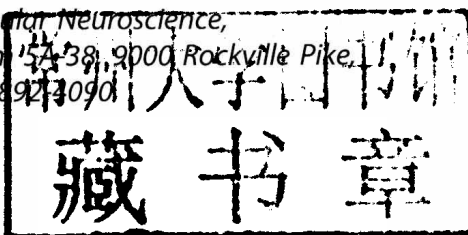 ular Neuroscience,
5A-38, 9000 Rockville Pike,
892-4090
常州大学图书馆
藏书章